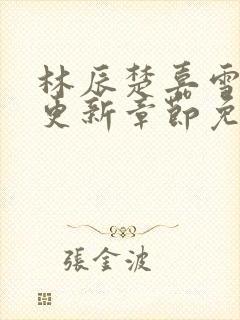 林辰楚嘉雪
更新章节免
張金波